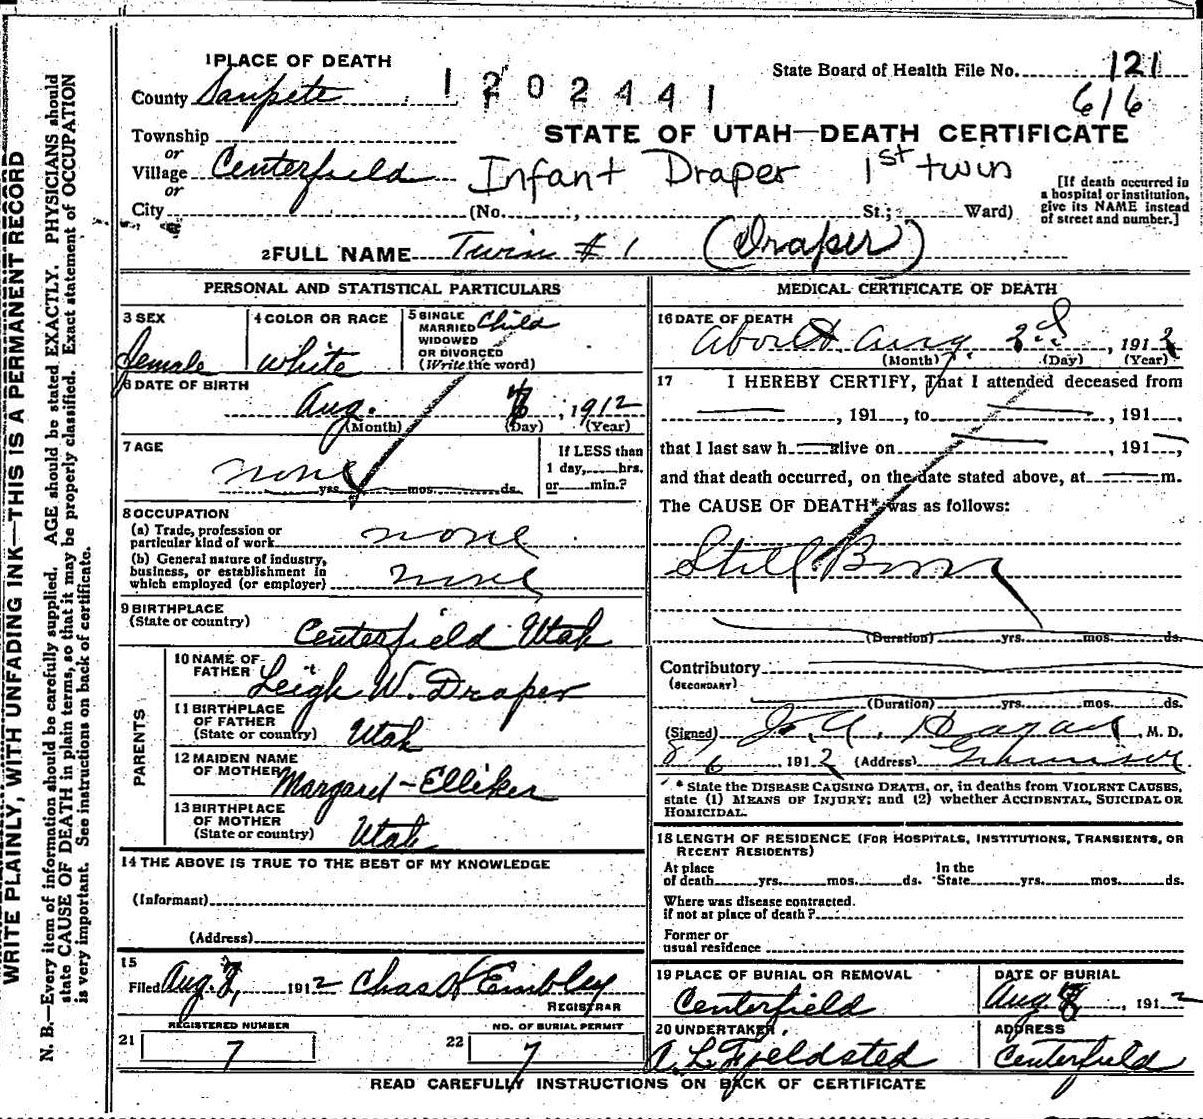 1 PLACE OF DEATH
State Board of Health File No. 121
616
County Sanpete
1202441
Township
STATE OF UTAH—DEATH CERTIFICATE
or
Village Centerfield
Infant Draper 1st twin
or
[If death occurred in
a hospital or institution,
give its NAME instead
of street and number.]
City (No. , St.; Ward)
2 FULL NAME Twin # 1 (Draper)
PERSONAL AND STATISTICAL PARTICULARS
3 SEX
female
4 COLOR OR RACE
white
5 SINGLE
MARRIED
WIDOWED
OR DIVORCED
(Write the word)
Child
6 DATE OF BIRTH
Aug. , 1912
(Month) (Day) (Year)
7 AGE
none
yrs. mos. ds.
If LESS than
1 day, hrs.
or min.?
8 OCCUPATION
(a) Trade, profession or
particular kind of work none
(b) General nature of industry,
business, or establishment in
which employed (or employer) none
9 BIRTHPLACE
(State or country)
Centerfield Utah
PARENTS
10 NAME OF
FATHER
Leigh W. Draper
11 BIRTHPLACE
OF FATHER
(State or country)
Utah
12 MAIDEN NAME
OF MOTHER
Margaret Elliker
13 BIRTHPLACE
OF MOTHER
(State or country)
Utah
14 THE ABOVE IS TRUE TO THE BEST OF MY KNOWLEDGE
(Informant)
(Address)
15
Filed Aug. , 1912 Chas Embley
REGISTRAR
21
REGISTERED NUMBER
7
22
NO. OF BURIAL PERMIT
7
MEDICAL CERTIFICATE OF DEATH
16 DATE OF DEATH
About Aug. , 1912
(Month) (Day) (Year)
17 I HEREBY CERTIFY, That I attended deceased from
, 191 , to , 191 ,
that I last saw h alive on , 191 ,
and that death occurred, on the date stated above, at m.
The CAUSE OF DEATH* was as follows:
Still Born
(Duration) yrs. mos. ds.
Contributory
(SECONDARY)
(Duration) yrs. mos. ds.
(Signed) , M. D.
8/6 1912 (Address)
* State the DISEASE CAUSING DEATH, or, in deaths from VIOLENT CAUSES,
state (1) MEANS OF INJURY; and (2) whether ACCIDENTAL, SUICIDAL OR
HOMICIDAL.
18 LENGTH OF RESIDENCE (FOR HOSPITALS, INSTITUTIONS, TRANSIENTS, OR
RECENT RESIDENTS)
At place
of death yrs. mos. ds.
In the
State yrs. mos. ds.
Where was disease contracted.
if not at place of death?
Former or
usual residence
19 PLACE OF BURIAL OR REMOVAL
Centerfield
DATE OF BURIAL
Aug , 1912
20 UNDERTAKER
A. L. Fjeldsted
ADDRESS
Centerfield
READ CAREFULLY INSTRUCTIONS ON BACK OF CERTIFICATE
WRITE PLAINLY, WITH UNFADING INK—THIS IS A PERMANENT RECORD
N. B.—Every item of information should be carefully supplied. AGE should be stated EXACTLY. PHYSICIANS should
state CAUSE OF DEATH in plain terms, so that it may be properly classified. Exact statement of OCCUPATION
is very important. See instructions on back of certificate.